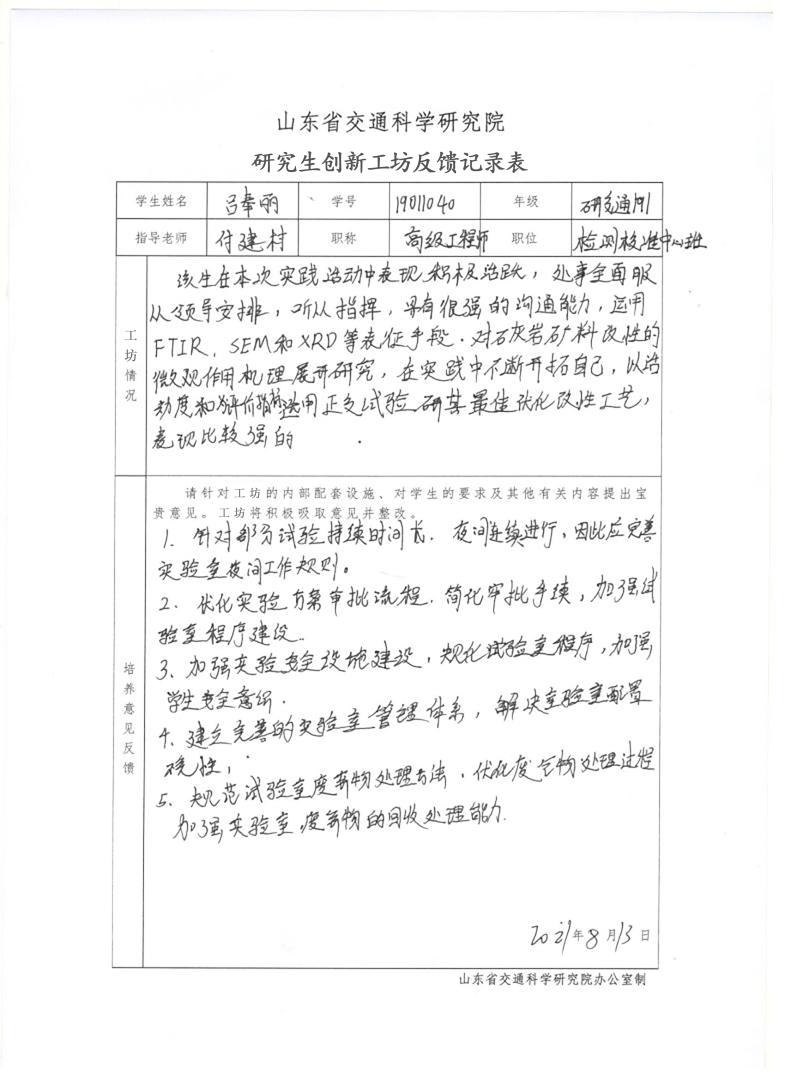 山东省交通科学研究院
研究生创新工坊反馈记录表
学生姓名 吕奉丽 学号 19011040 年级 研交通191
指导老师 付建村 职称 高级工程师 职位 检测校准中心
工坊情况
该生在本次实践活动中表现积极活跃，处事全面服
从领导安排，听从指挥，具有很强的沟通能力，运用
FTIR、SEM和XRD等表征手段．对石灰岩矿料改性的
微观作用机理展开研究，在实践中不断开拓自己，以活
动度和 评价指标 选用正交试验 研 最佳优化改性工艺，
表现比较强的
培养意见反馈
请针对工坊的内部配套设施、对学生的要求及其他有关内容提出宝
贵意见。工坊将积极吸取意见并整改。
1. 针对部分试验持续时间长．夜间连续进行，因此应完善
实验室夜间工作规则。
2. 优化实验方案审批流程．简化审批手续，加强试
验室程序建设．
3. 加强实验安全设施建设，规化试验室程序，加强
学生安全意识．
4. 建立完善的实验室管理体系，解决实验室配置
性；
5. 规范试验室废弃物处理方法，优化废弃物处理过程
加强实验室废弃物的回收处理能力．
2021年8月13日
山东省交通科学研究院办公室制